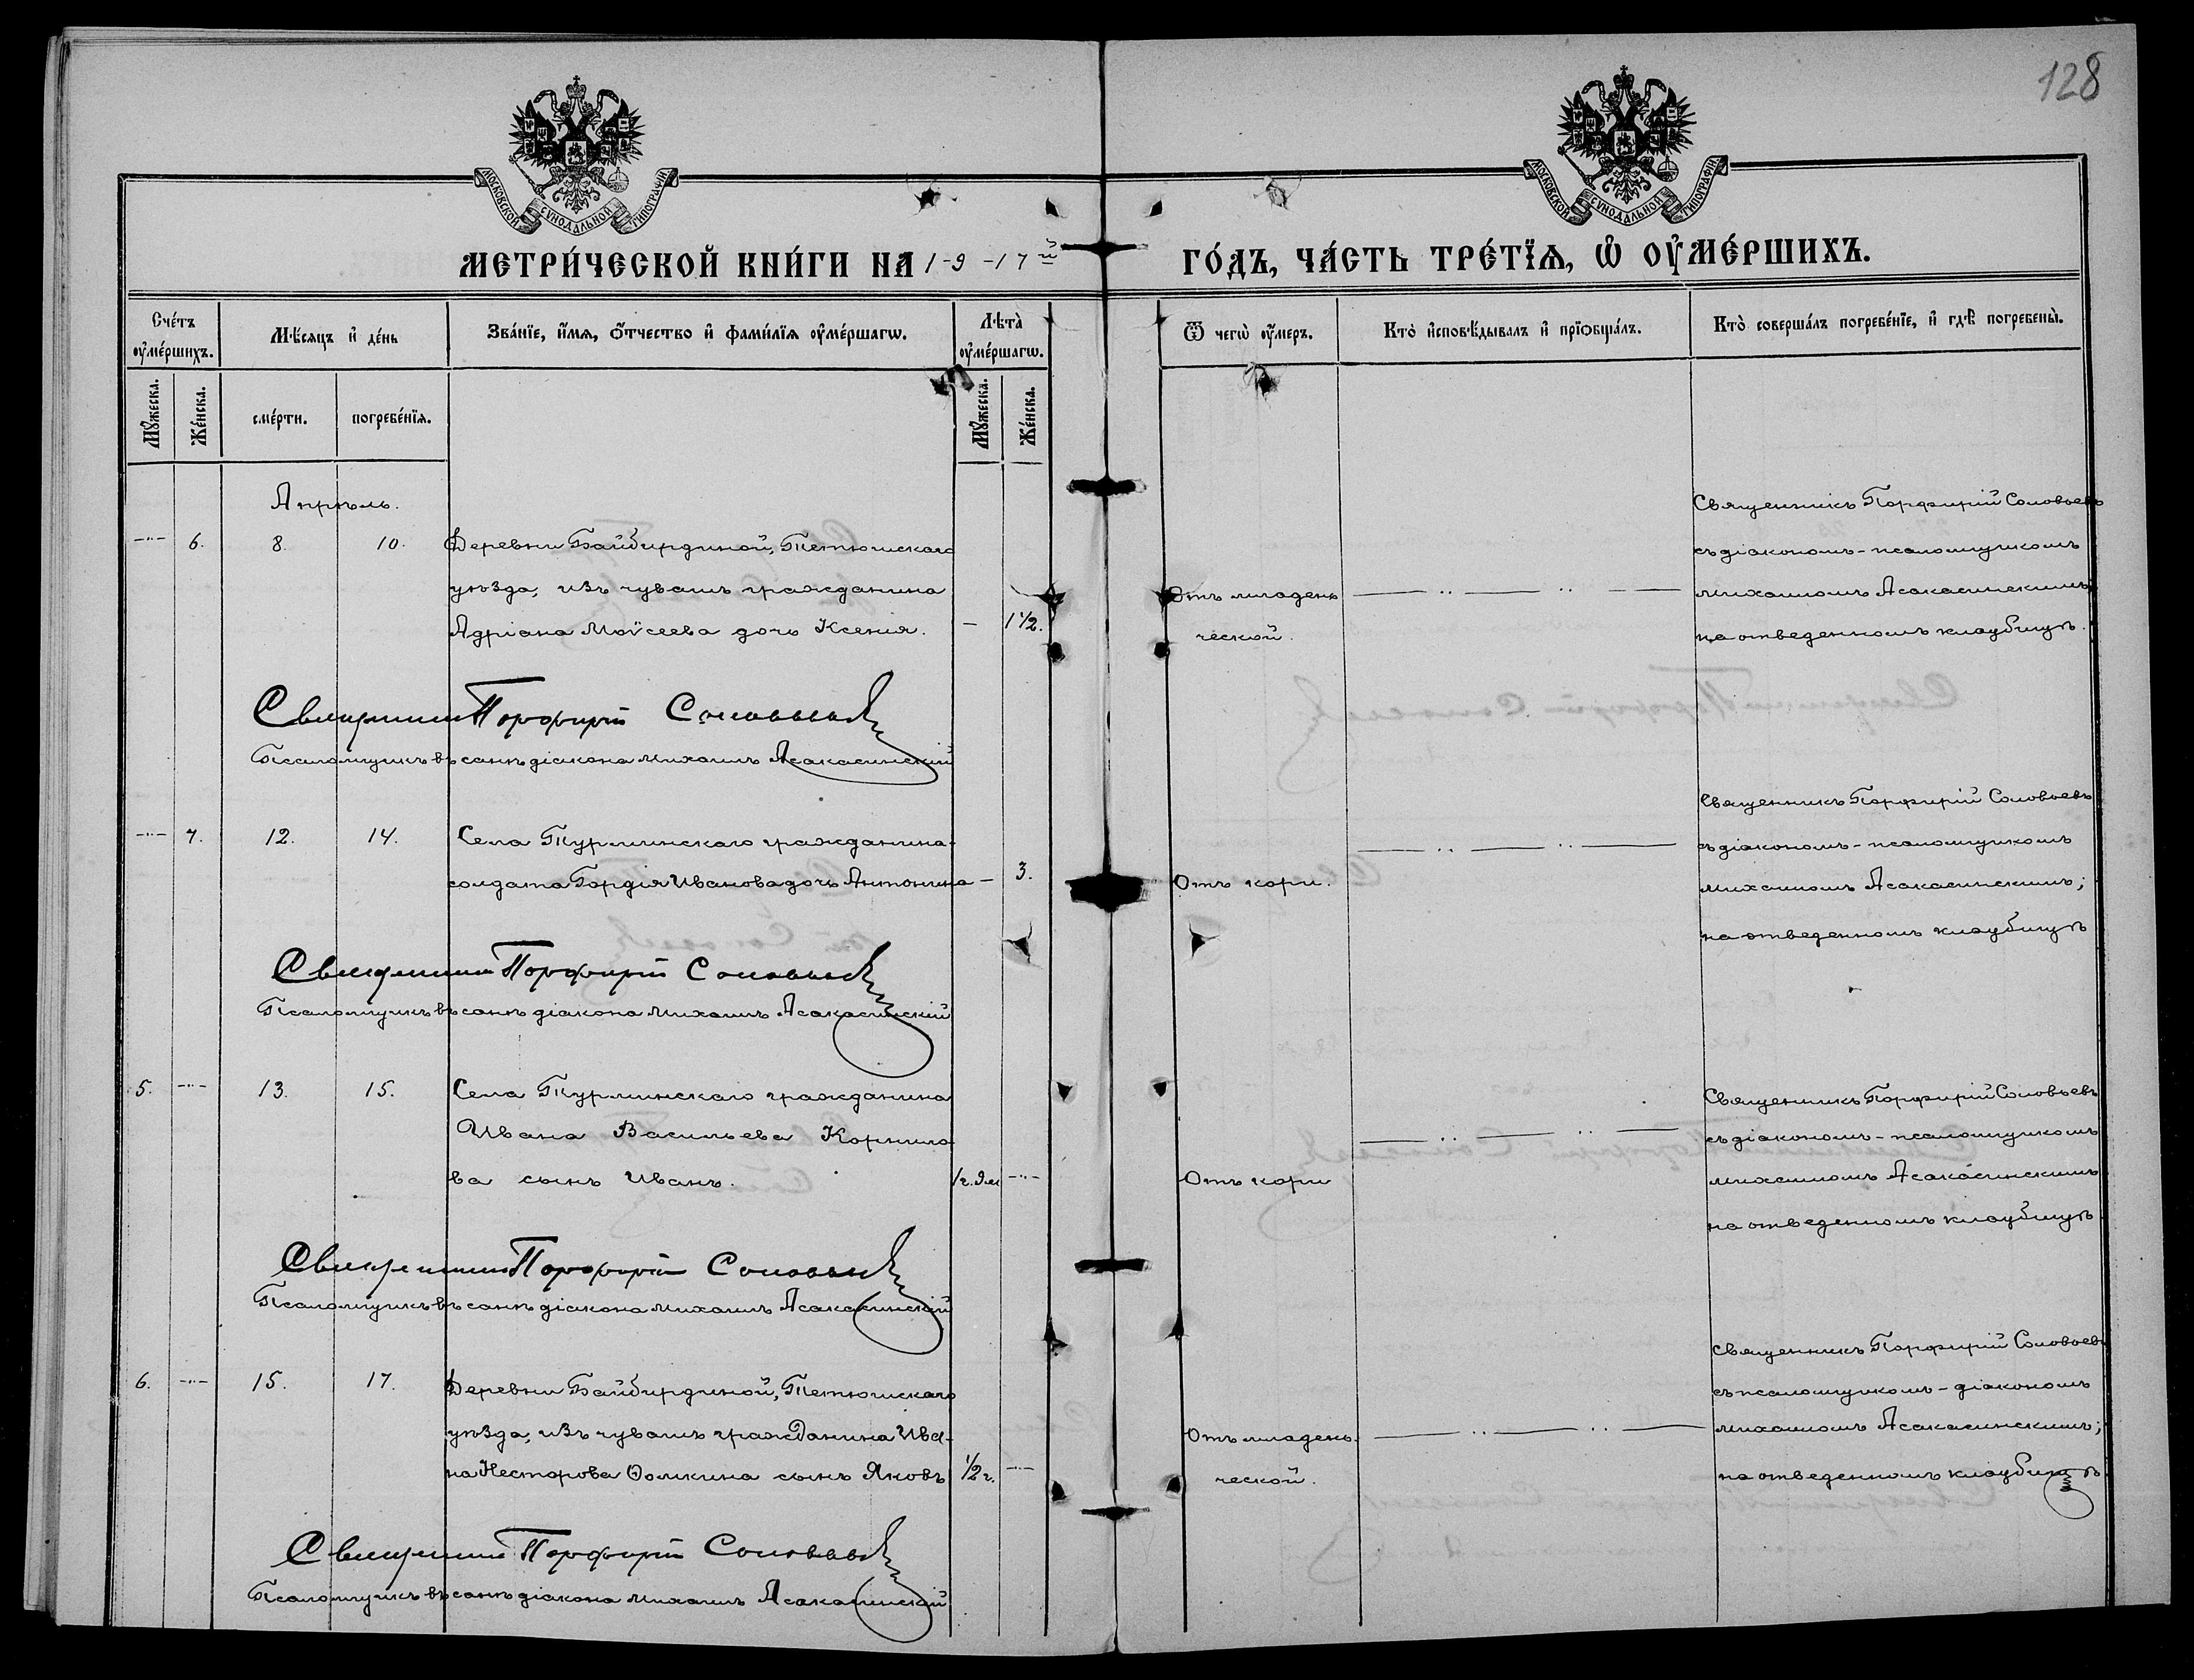 128
МОСКОВСКОЙ СѴНОДАЛЬНОЙ ТИПОГРАФІИ
МОСКОВСКОЙ СѴНОДАЛЬНОЙ ТИПОГРАФІИ
МЕТРИ́ЧЕСКОЙ КНИ́ГИ НА 1-9-17й ГО́ДЪ, ЧА́СТЬ ТРЕ́ТЇѦ, Ѡ҆ ОУ҆МЕ́РШИХЪ.
Сче́тъ оу҆ме́ршихъ.
Мѣ́сяцъ и҆ де́нь
Зва́нїе, и҆́мѧ, ѻ҆́тчество и҆ фами́лїѧ оу҆ме́ршагѡ.
Лѣта̀ оу҆ме́ршагѡ.
Ѿ чегѡ̀ оу҆́меръ.
Кто̀ и҆сповѣ́дывалъ и҆ прїѻбща́лъ.
Кто̀ соверша́лъ погребе́нїе, и҆ гдѣ̀ погребены̀.
Мꙋ́жеска.
Же́нска.
сме́рти.
погребе́нїѧ.
Мꙋ́жеска.
Же́нска.
Апрѣль.
6. 8. 10.
Деревни Байбирдиной, Тетюшскаго
уѣзда, изъ чувашъ гражданина
Адріана Моѵсеева дочь Ксенія.
– 1 1/2.
Отъ младен
ческой.
Священникъ Порфирій Соловьевъ
съ діакономъ-псаломщикомъ
Михаиломъ Асакасинскимъ;
на отведенномъ кладбищѣ.
Священникъ Порфирій Соловьевъ
Псаломщикъ въ санѣ діакона Михаилъ Асакасинскій
7. 12. 14.
Села Турминскаго гражданина-
солдата Гордія Иванова дочь Антонина
– 3.
Отъ кори.
Священникъ Порфирій Соловьевъ
съ діакономъ-псаломщикомъ
Михаиломъ Асакасинскимъ;
на отведенномъ кладбищѣ
Священникъ Порфирій Соловьевъ
Псаломщикъ въ санѣ діакона Михаилъ Асакасинскій
5. 13. 15.
Села Турминскаго гражданина
Ивана Васильева Корнило
ва сынъ Иванъ.
1г.9м
Отъ кори
Священникъ Порфирій Соловьевъ
съ діакономъ-псаломщикомъ
Михаиломъ Асакасинскимъ
на отведенномъ кладбищѣ
Священникъ Порфирій Соловьевъ
Псаломщикъ въ санѣ діакона Михаилъ Асакасинскій
6. 15. 17.
Деревни Байбирдиной, Тетюшскаго
уѣзда, изъ чувашъ гражданина Ива-
на Несторова Ѳомкина сынъ Яковъ
1/2 г.
Отъ младен-
ческой.
Священникъ Порфирій Соловьевъ
съ псаломщикомъ-діакономъ
Михаиломъ Асакасинскимъ;
на отведенномъ кладбищѣ
Священникъ Порфирій Соловьевъ
Псаломщикъ въ санѣ діакона Михаилъ Асакасинскій